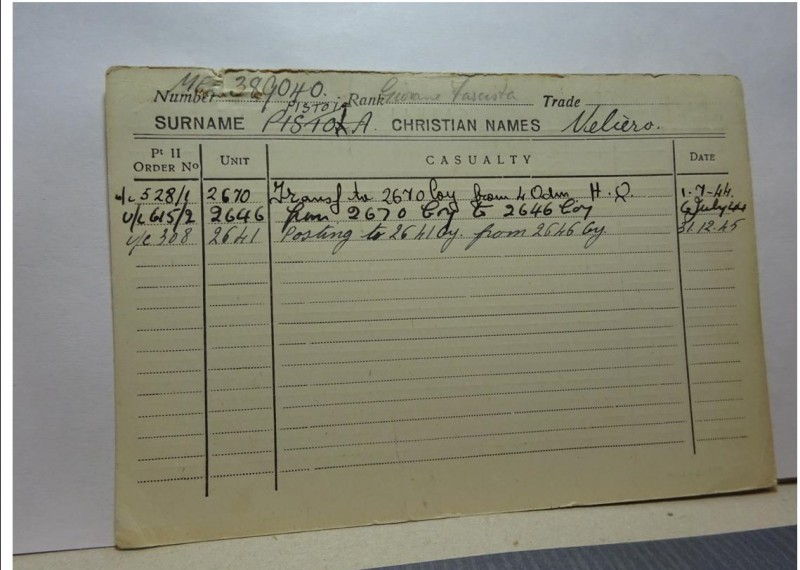 Number ME 389040. Rank Giovane Fascista Trade
PISTOIA
SURNAME PISTOIA. CHRISTIAN NAMES Meliero.
Pt II ORDER No UNIT CASUALTY DATE
u/c 528/1 2670 Transf to 2670 Coy from 4 Adm H.Q. 1-7-44.
u/c 615/2 2646 from 2670 Coy to 2646 Coy
u/c 308 2641 Posting to 2641 Cy. from 2646 Cy. 31.12.45